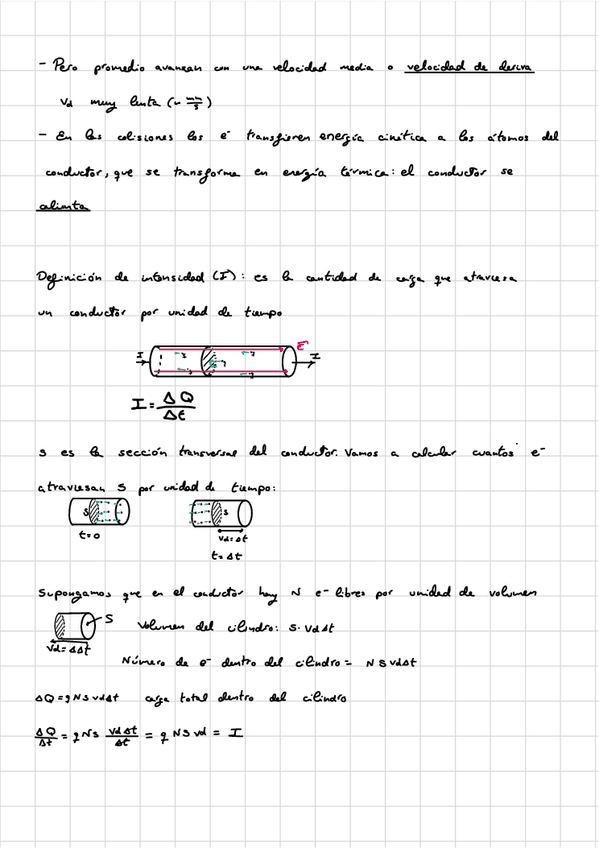 - Pero promedio avanzan con una velocidad media o velocidad de deriva
Vd muy lenta (~ mm/s)
- En las colisiones los e- transfieren energía cinética a los átomos del
conductor, que se transforma en energía térmica: el conductor se
calienta
Definición de intensidad (I): es la cantidad de carga que atraviesa
un conductor por unidad de tiempo
I E I
I = ΔQ/Δt
S es la sección transversal del conductor. Vamos a calcular cuantos e-
atraviesan S por unidad de tiempo:
S S
t=0 Vd=Δt
t=Δt
Supongamos que en el conductor hay N e- libres por unidad de volumen
S Volumen del cilindro: S·VdΔt
Vd=ΔΔt
Número de e- dentro del cilindro = NSvdΔt
ΔQ=qNSvdΔt carga total dentro del cilindro
ΔQ/Δt = qNS VdΔt/Δt = qNSvd = I